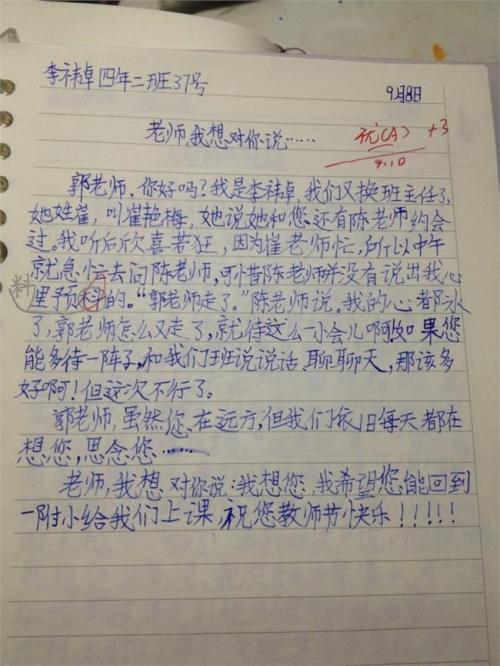 李祎卓四年二班37号
9月8日
老师,我想对你说……
优(A) +3
9.10
郭老师,你好吗?我是李祎卓,我们又换班主任了,
她姓崔,叫崔艳梅,她说她和您还有陈老师约会
过。我听后欣喜若狂,因为崔老师忙,所以中午
就急忙去问陈老师,可惜陈老师并没有说出我心
料
里预料的。“郭老师走了。”陈老师说。我的心都冰
了,郭老师怎么又走了,就待这么一小会儿啊如果您
能多待一阵子,和我们班说说话,聊聊天,那该多
好啊!但这次不行了。
郭老师,虽然您在远方,但我们依旧每天都在
想您,思念您……
老师,我想对你说:我想您,我希望您能回到
一附小给我们上课,祝您教师节快乐!!!!!